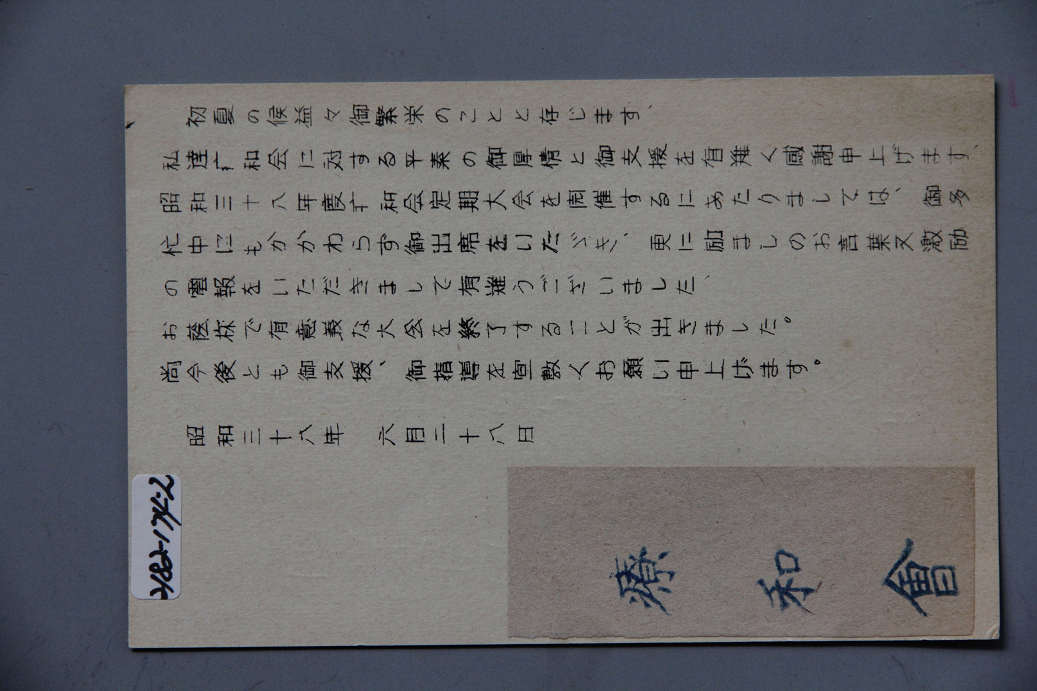 初夏の候益々御繁栄のことと存じます、
私達疒和会に対する平素の御厚情と御支援を有難く感謝申上げます、
昭和三十八年度疒和会定期大会を開催するにあたりましては、御多
忙中にもかかわらず御出席をいたゞき、更に励ましのお言葉又激励
の電報をいただきまして有難うございました、
お蔭様で有意義な大会を終了することが出きました。
尚今後とも御支援、御指導を宜敷くお願い申上げます。
昭和三十八年 六月二十八日
療和會
2182-174-2